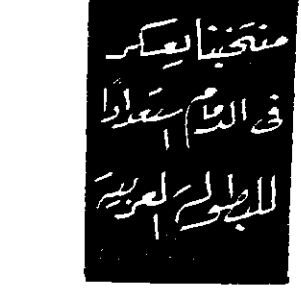 منتخبنا يعسكر
في الدمام استعدادًا
للبطولة العربية